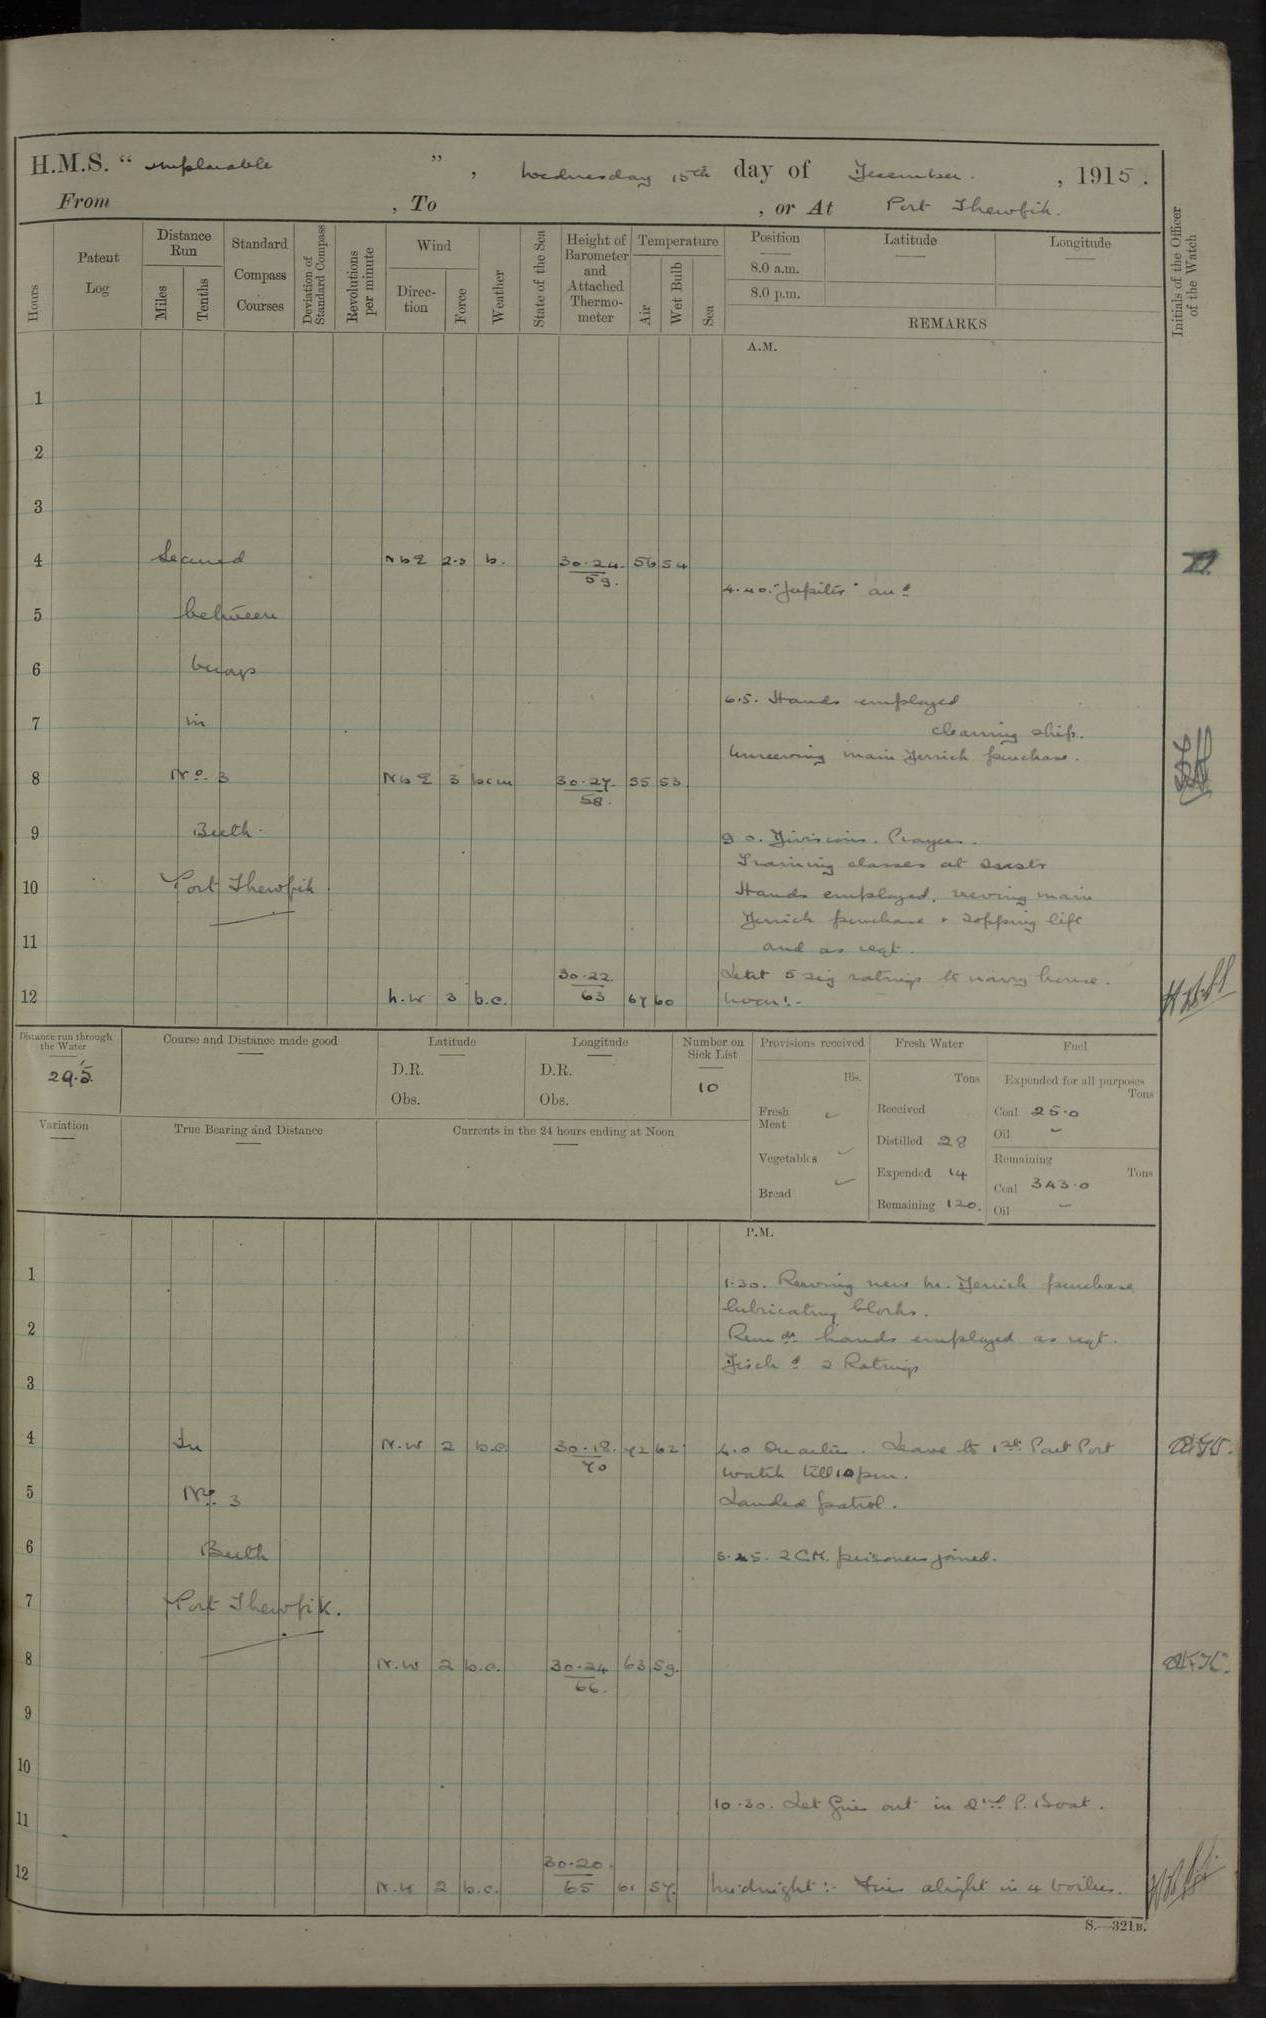 H.M.S. "Implacable", Wednesday 15th day of December, 1915.
From , To , or At Port Thewfik.
Hours
Patent Log
Distance Run
Miles
Tenths
Standard Compass Courses
Deviation of Standard Compass
Revolutions per minute
Wind
Direction
Force
Weather
State of the Sea
Height of Barometer and Attached Thermometer
Temperature
Air
Wet Bulb
Sea
Position
8.0 a.m.
8.0 p.m.
Latitude
Longitude
REMARKS
Initials of the Officer of the Watch
A.M.
1
2
3
4 Secured NbE 2.3 b. 30.24. 59. 56 54
4.40. "Jupiter" arrd
5 between
6 buoys
6.5. Hands employed
7 in
cleaning ship.
Unreeving main Derrick purchase.
8 No. 3 NbE 3 bcm 30.27. 58. 55 53
9 Berth.
9 0. Divisions. Prayers.
Training classes at Insts
10 Port Thewfik
Hands employed, reeving main
Derrick purchase & topping lift
11
and as reqt.
Lent 5 sig ratings to navy house.
12 N.W 3 b.c. 30.22 63 67 60
noon:-
Distance run through the Water
29.5
Course and Distance made good
Latitude
D.R.
Obs.
Longitude
D.R.
Obs.
Number on Sick List
10
Provisions received
lbs.
Fresh Meat
Vegetables
Bread
Fresh Water
Tons
Received
Distilled 28
Expended 14
Remaining 120.
Fuel
Expended for all purposes
Tons
Coal 25.0
Oil
Remaining
Tons
Coal 343.0
Oil
Variation
True Bearing and Distance
Currents in the 24 hours ending at Noon
P.M.
1
1.30. Reeving new M. Derrick purchase
lubricating blocks.
2
Remdr hands employed as reqt.
Disch d 2 Ratings
3
4 In N.W 2 b.c 30.18. 70 72 62
4.0 Quarters. Leave to 1st Part Port
watch till 10 pm.
5 No. 3
Landed patrol.
6 Berth
5.45. 2 C.M. prisoners joined.
7 Port Thewfik.
8 N.W 2 b.c. 30.24 66. 63 59.
9
10
10.30. Let fires out in 2nd P. Boat.
11
12 N.W 2 b.c. 30.20. 65 61 57.
Midnight:- Fires alight in 4 boilers.
S.—321B.